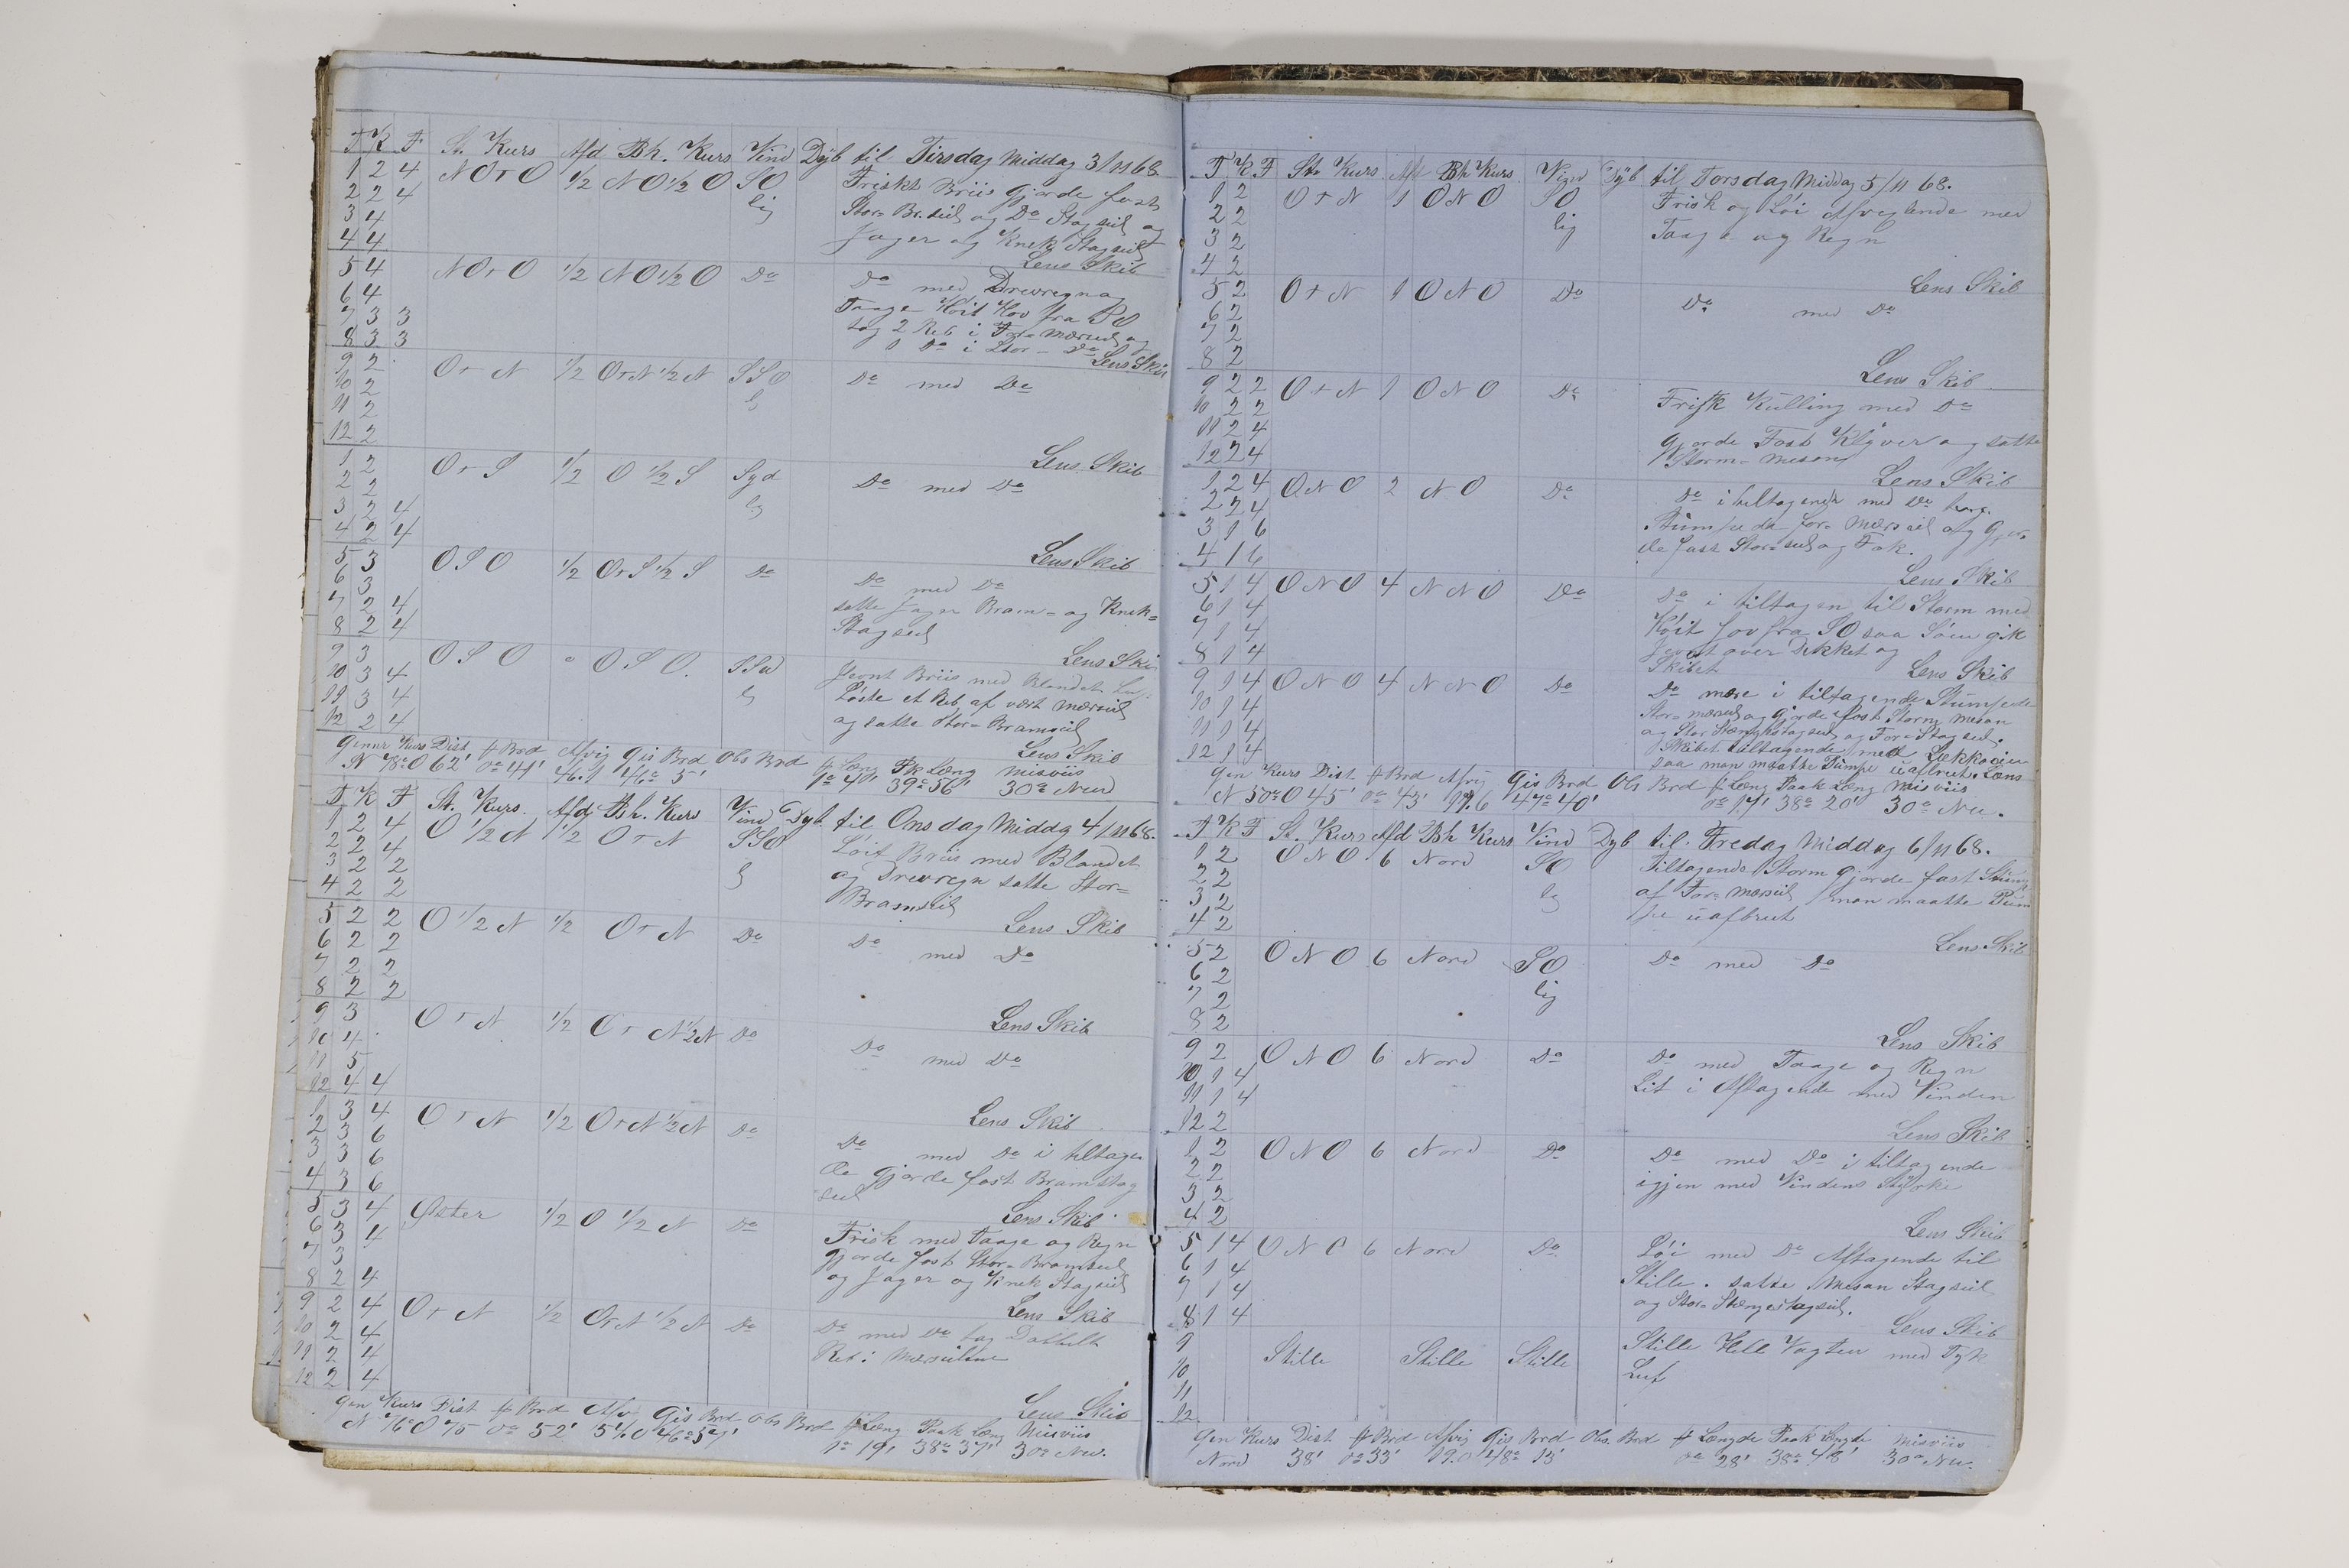 T K F St. Kurs Afd Bh. Kurs Vind Dÿb til Tirsdag Middag 3/11 68
1 2 4 NOtO 1/2 NO1/2O SO Friskt Briis Gjorde fast
2 2 4 lig Stor= Br. seil og Do Stagseil og
3 4 Jager og Knek Stagseil
4 4 Lens Skib
5 4 NOtO 1/2 NO1/2O Do Do med Drevregn og
6 4 Taage Höit Hov fra SO
7 3 3 tog 2 Reb i For= Mærseil og
8 3 3 1 Do i Stor = Do Lens Skib
9 2 OtN 1/2 OtN1/2N SSO Do med Do
10 2 lg
11 2
12 2 Lens Skib
1 2 OtS 1/2 O 1/2 S Syd Do med Do
2 2 lg
3 2 4
4 2 4 Lens Skib
5 3 OSO 1/2 OtS1/2S Do Do med Do
6 3 satte Jager Bram= og Knek=
7 2 4 Stagseil
8 2 4 Lens Skib
9 3 OSO " OSO. SSW Jevnt Briis med Blandet Luf=
10 3 4 lg Löste et Reb af vært Mærseil
11 3 4 og satte Stor= Bramseil
12 2 4 Lens Skib
Gennr Kurs Dist ff Brd Afvig Gis Brd Obs Brd ff Læng Pk Læng Misviis
N 78oO 62' 0o 41' 46.1 46o 5' 1o 40' 39o 56' 30o NW
T K F St. Kurs. Afd Bh. Kurs Vind Dyb. til Onsdag Middag 4/11 68.
1 2 4 O 1/2 N 1/2 OtN SSO Löit Briis med Blandet
2 2 4 lg og Drevregn satte Stor=
3 2 2 Bramseil
4 2 2 Lens Skib
5 2 2 O 1/2 N 1/2 OtN Do Do med Do
6 2 2
7 2 2
8 2 2 Lens Skib
9 3 OtN 1/2 OtN1/2N Do Do med Do
10 4
11 5
12 4 4 Lens Skib
1 3 4 OtN 1/2 OtN1/2N Do Do med Do i tiltagen
2 3 6 de Gjorde fast Bramstag
3 3 6 seil
4 3 6 Lens Skib
5 3 4 Øster 1/2 O 1/2 N Do Frisk med Taage og Regn
6 3 4 Gjorde fast Stor= Bramseil
7 3 og Jager og Knek Stagseil
8 2 4 Lens Skib
9 2 4 OtN 1/2 OtN1/2N Do Do med Do tog Dobbelt
10 2 4 Reb i Mærseilene
11 2 4
12 2 4 Lens Skib
Gen Kurs Dist ff Brd Afv Gis Brd Obs Brd ff Læng Paak Læng Misviis
N 76oO 75 0o 52' 54.0 46o57' 1o 19' 38o 37' 30o NW.
T K F St. Kurs Afd Bh Kurs Vind Dyb til Torsdag Middag 5/11 68.
1 2 OtN 1 ONO SO Frisk og Löi Afvexlende med
2 2 lig Taage og Regn
3 2
4 2 Lens Skib
5 2 OtN 1 ONO Do Do med Do
6 2
7 2
8 2 Lens Skib
9 2 2 OtN 1 ONO Do Frisk Kulling med Do
10 2 2
11 2 4 Gjorde Fast Klyver og satte
12 2 4 Storm= Mesan
1 2 4 ONO 2 NO Do Lens Skib
2 2 4 Do i tiltagende med Do
3 1 6 Stumpede For= Mærseil og Gjor=
4 1 6 de fast Stor= seil og Fok.
Lens Skib
5 1 4 ONO 4 NNO Do Do i tiltagen til Storm med
6 1 4 Höit Hov fra SO saa Söen gik
7 1 4 jevnt over Dekket og
8 1 4 Skibet Lens Skib
9 1 4 ONO 4 NNO Do Do mere i tiltagende Stumpede
10 1 4 Stor= Mærseil og Gjorde fast Storm Mesan
11 1 4 og Stor Stængestagseil og For= Stagseil.
12 1 4 Skibet tiltagende med Lækkagen
saa man maatte Pumpe uafbrut. Læns
Gen Kurs Dist ff Brd Afvig Gis Brd Obs Brd ff Læng Paak Læng Misviis
N 50oO 45' 0o 43' 11.6 47o 40' 0o 17' 38o 20' 30o NW.
T K F St. Kurs Afd Bh Kurs Vind Dyb til. Fredag Middag 6/11 68.
1 2 ONO 6 Nord SO Tiltagende Storm Gjorde fast Stump
2 2 lg af For= Mærseil man maatte Pum
3 2 pe uafbrut
4 2 Lens Skib
5 2 ONO 6 Nord SO Do med Do
6 2 lig
7 2
8 2 Lens Skib
9 2 ONO 6 Nord Do Do med Taage og Regn
10 1 4 Lit i Aftagende med Vinden
11 1 4
12 2 Lens Skib
1 2 ONO 6 Nord Do Do med Do i tiltagende
2 2 igjen med Vindens Styrke
3 2
4 2 Lens Skib
5 1 4 ONO 6 Nord Do Löi med Do Aftagende til
6 1 4 Stille. satte Mesan Stagseil
7 1 4 og Stor= Stængestagseil.
8 1 4 Lens Skib
9 Stille Stille Stille Stille Hele Vagten med Tyk
10 Luf
11
12
Gen Kurs Dist ff Brd Afvig Gis Brd Obs. Brd ff Længde Paak Længde Misviis
Nord 38' 0o33' 19.0 48o 13' 0o 28' 38o 48' 30o NW.